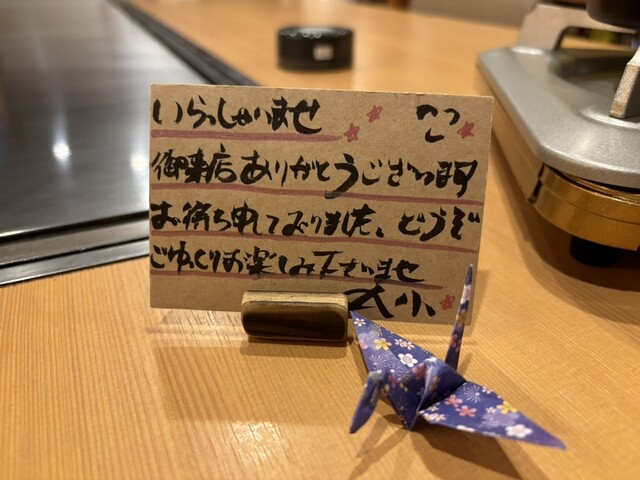 いらっしゃいませ
御来店ありがとうございます
お待ち申しておりました、どうぞ
ごゆっくりお楽しみ下さいませ
大小